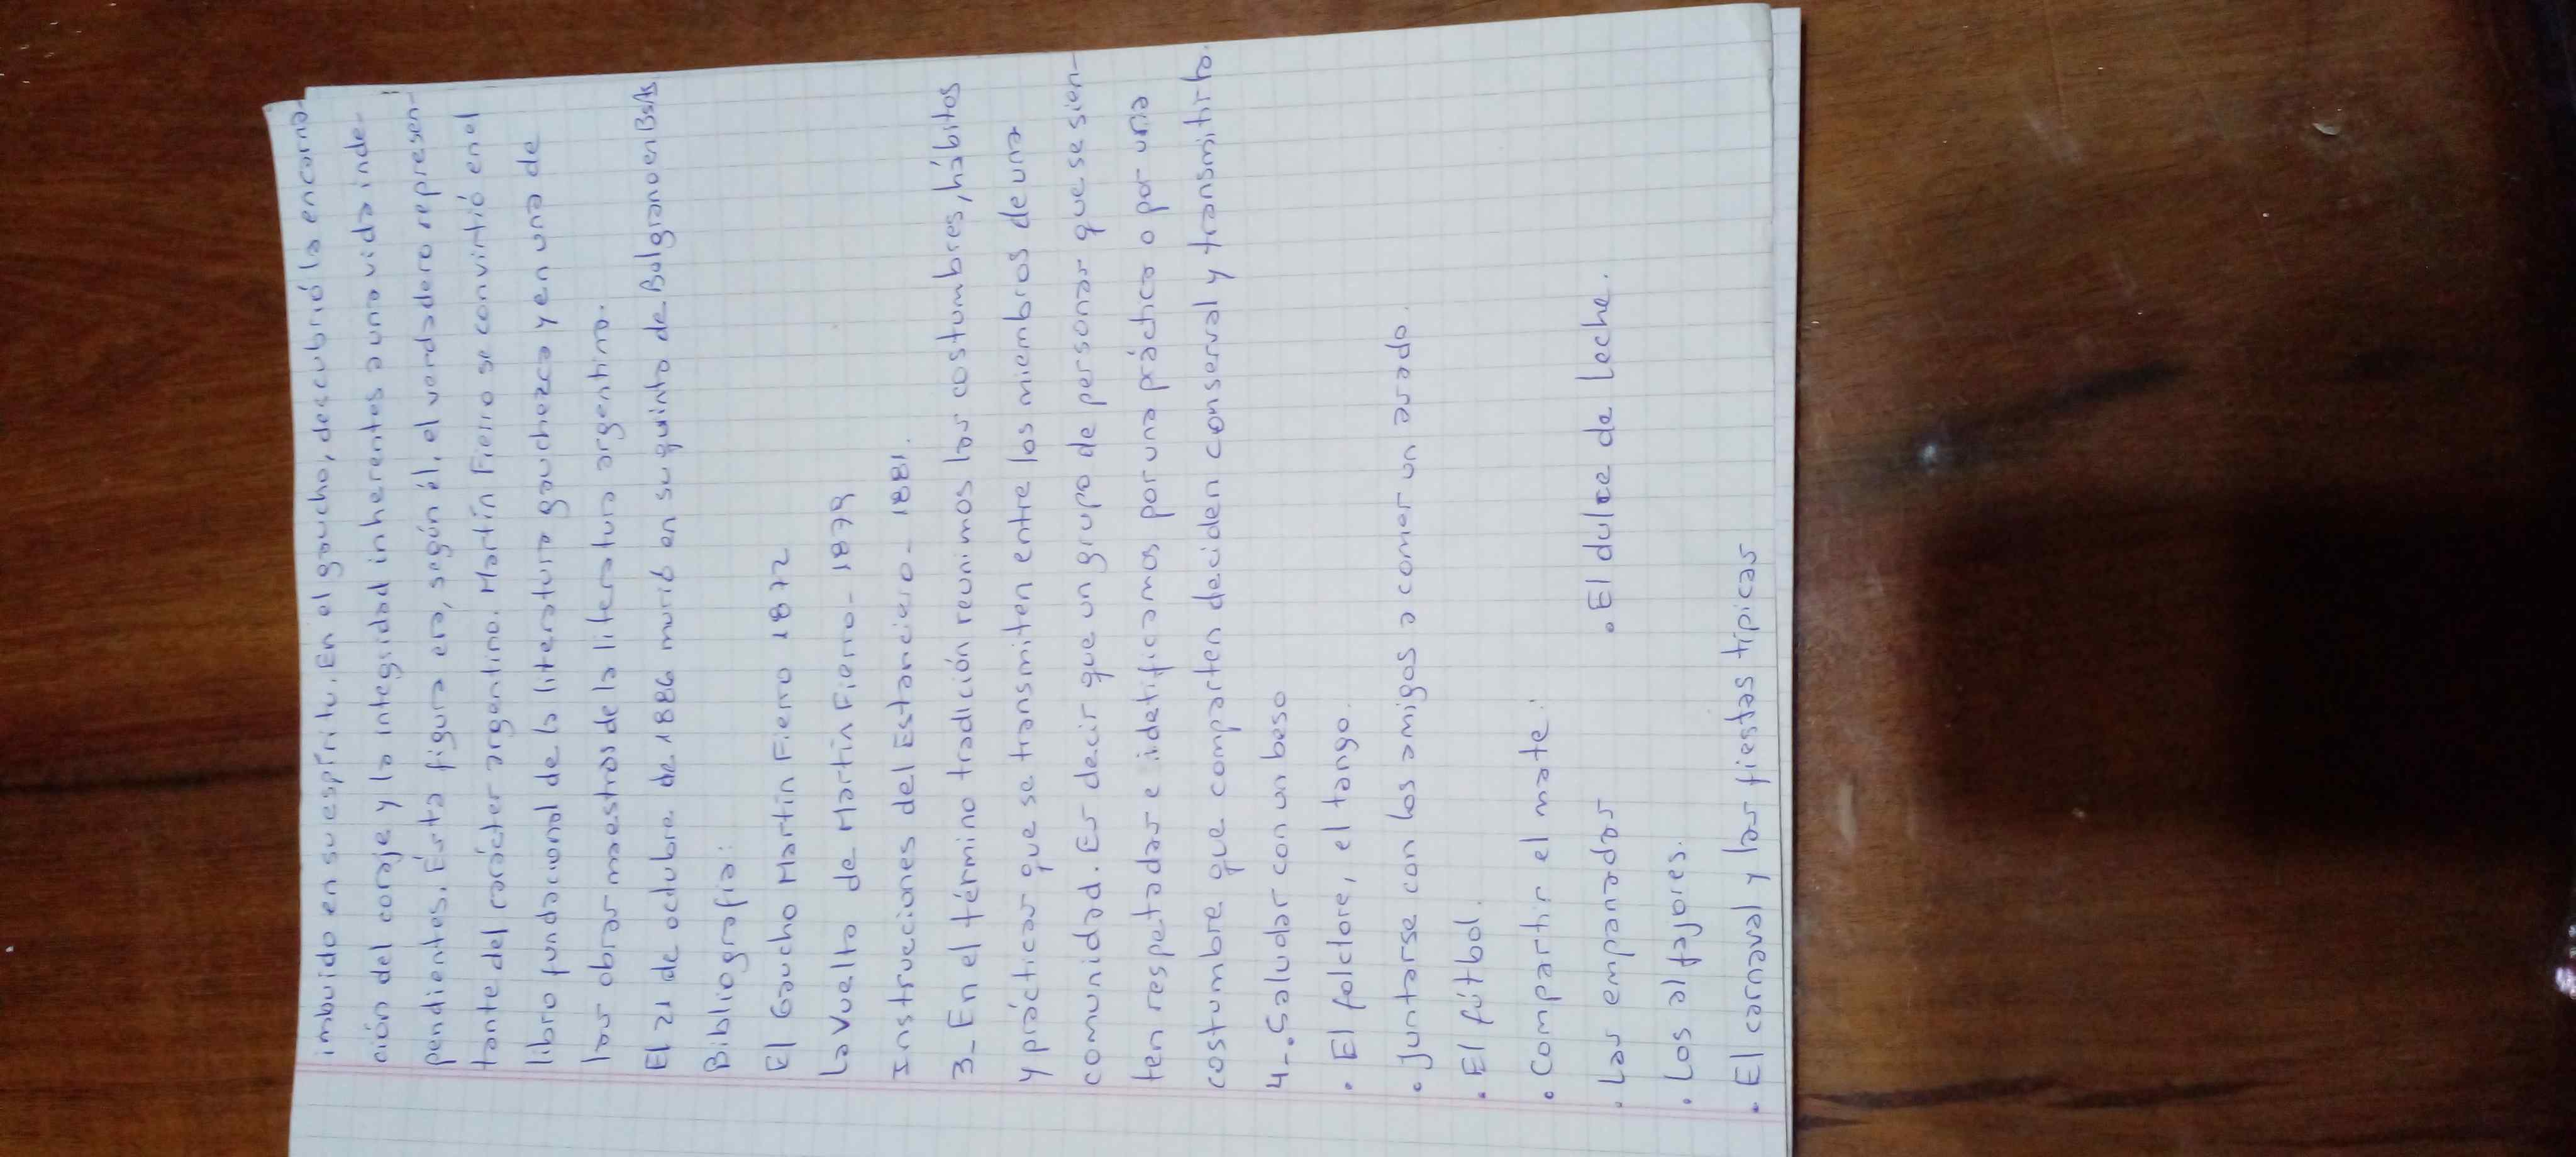 imbuido en su espíritu. En el gaucho, descubrió la encarna-
ción del coraje y la integridad inherentes a una vida inde-
pendientes. Ésta figura era, según él, el verdadero represen-
tante del carácter argentino. Martín Fierro se convirtió en el
libro fundacional de la literatura gauchezca y en una de
las obras maestras de la literatura argentina.
El 21 de octubre de 1886 murió en su quinta de Belgrano en BsAs
Bibliografía:
El Gaucho Martín Fierro 1872
La Vuelta de Martín Fierro - 1879
Instrucciones del Estanciero - 1881.
3_ En el término tradición reunimos las costumbres, hábitos
y prácticas que se transmiten entre los miembros de una
comunidad. Es decir que un grupo de personas que se sien-
ten respetadas e idetificamos por una práctica o por una
costumbre que comparten deciden conserval y transmitirla.
4-. Saludar con un beso
• El folclore, el tango.
• Juntarse con los amigos a comer un asado.
• El fútbol.
• Compartir el mate.
• Las empanadas • El dulce de Leche.
• Los alfajores.
• El carnaval y las fiestas típicas